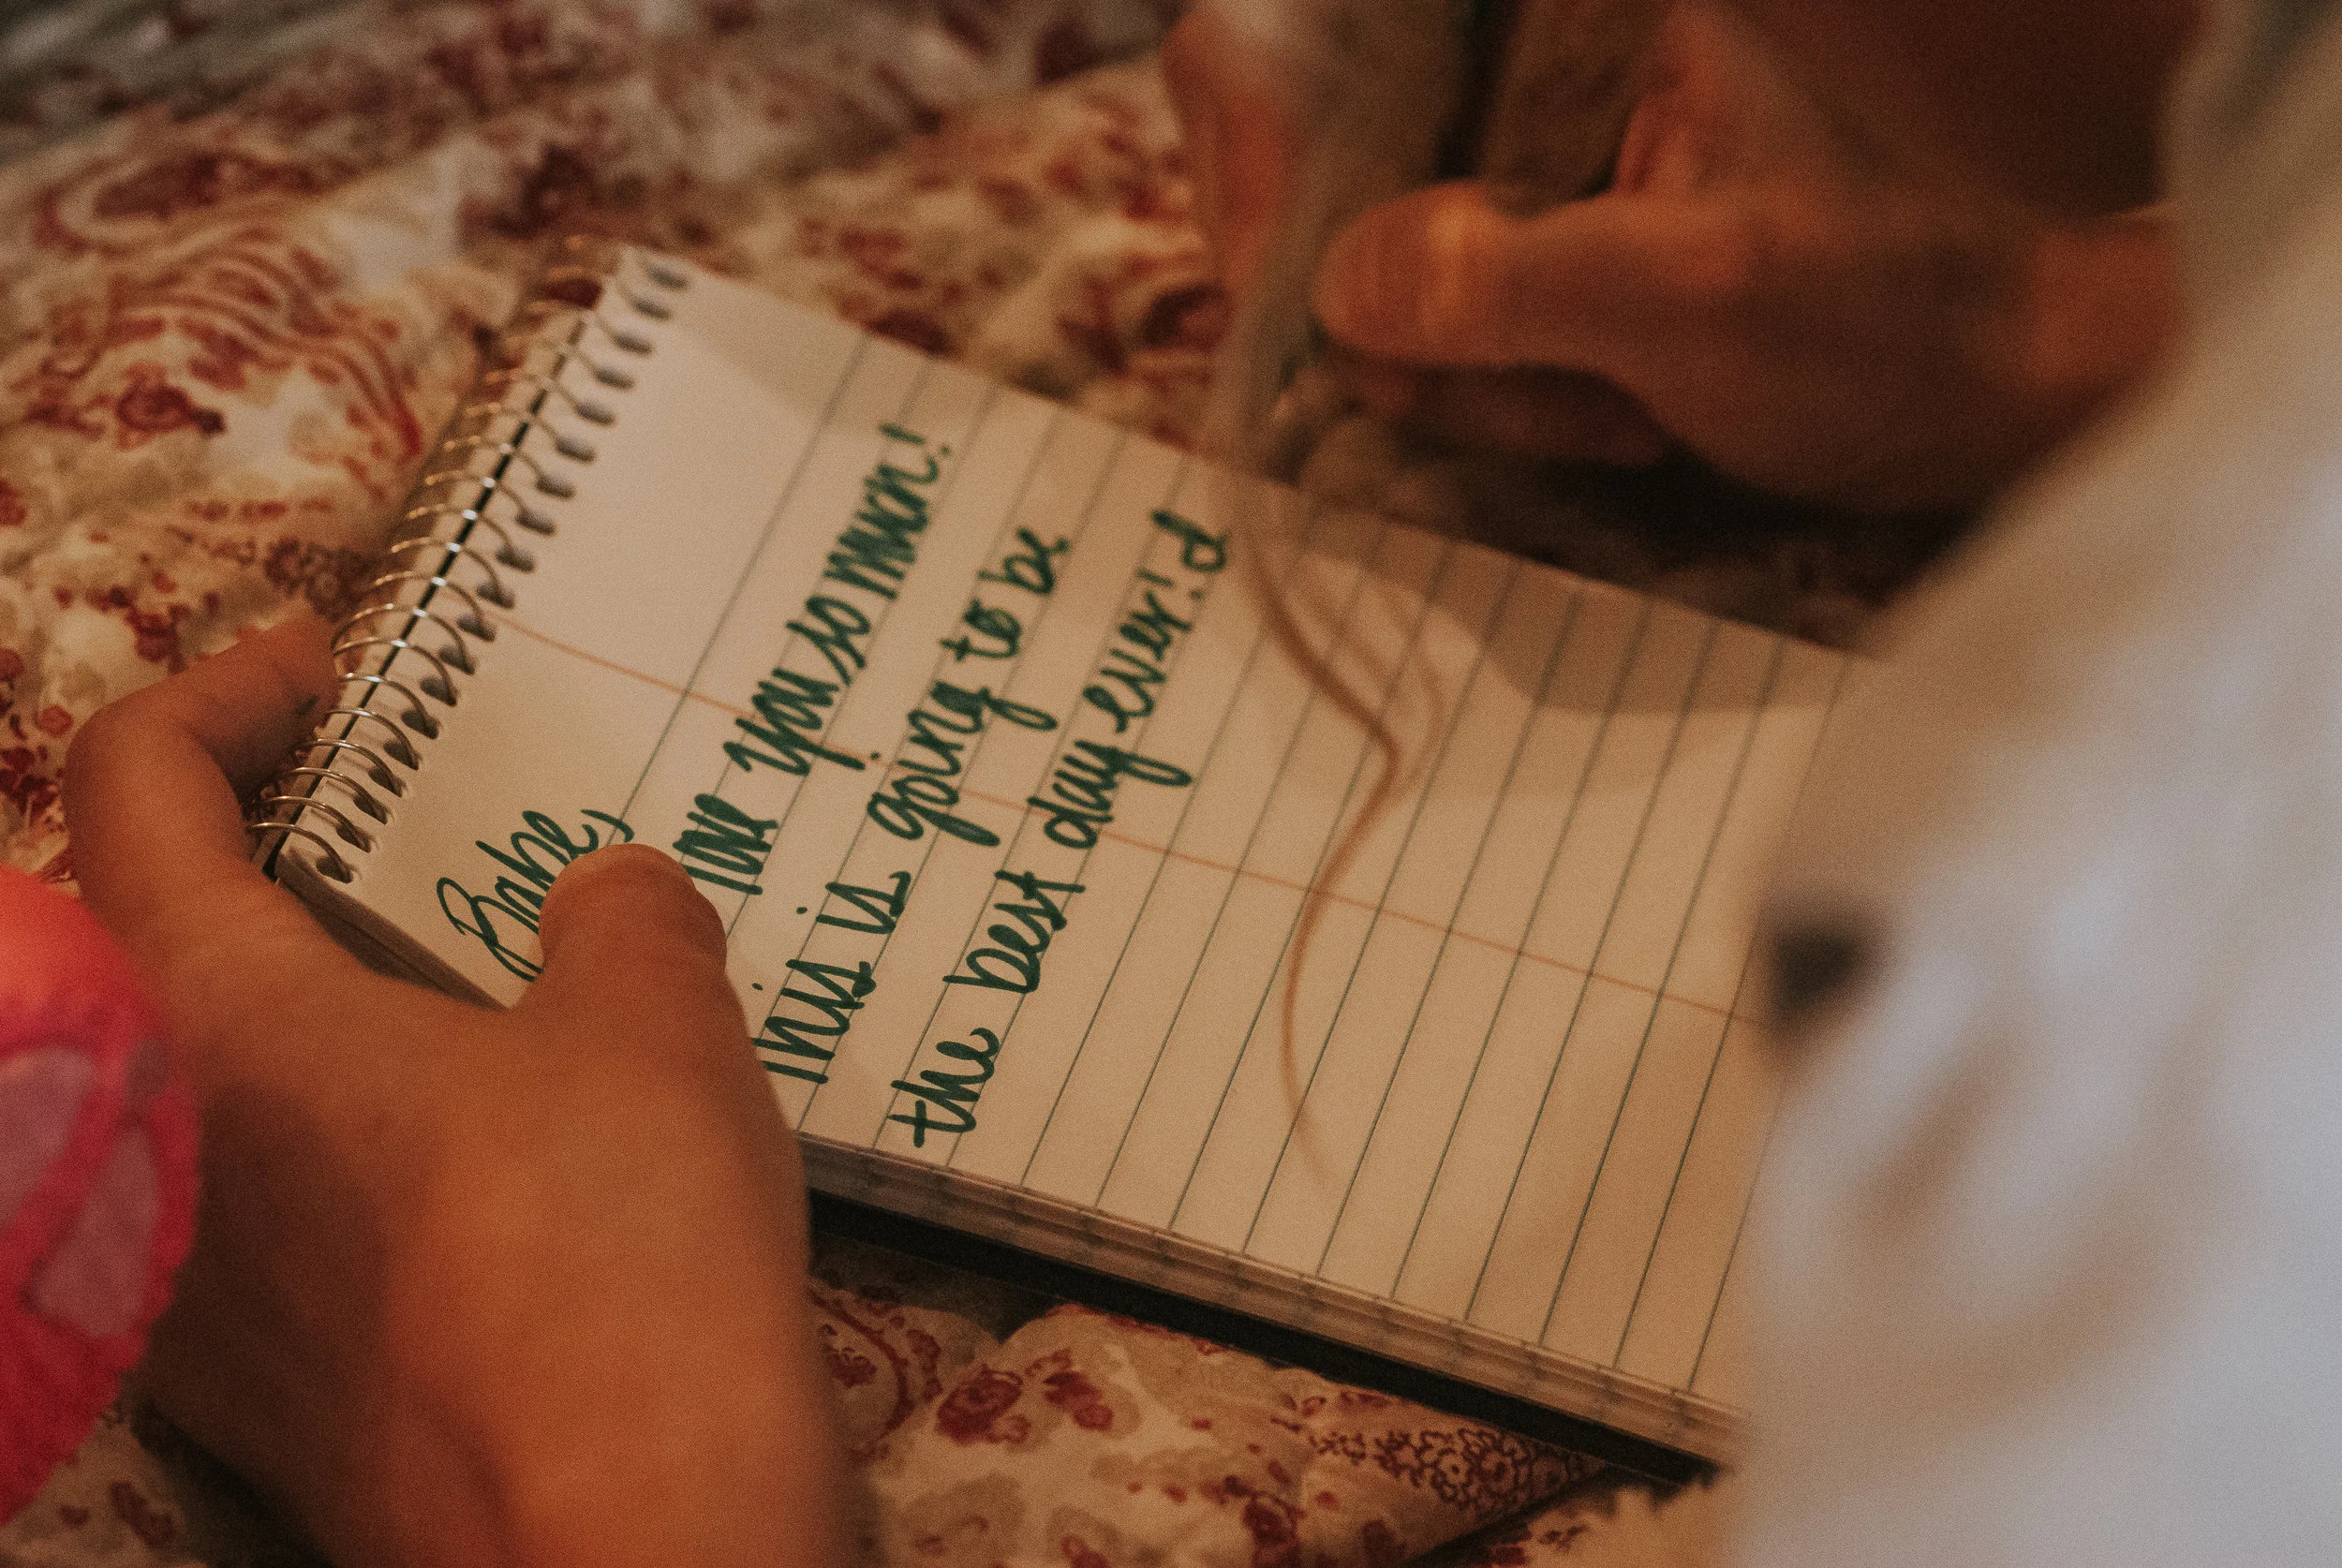 Babe,
love you so much!
This is going to be
the best day ever! d